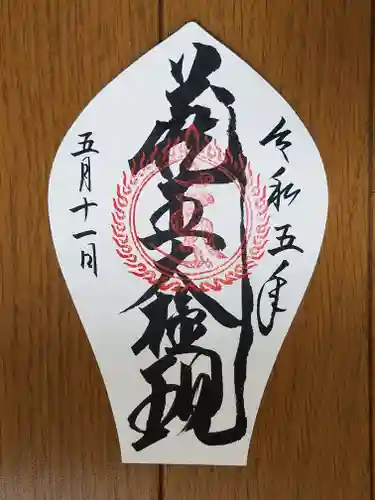 令和五年
蔵王権現
五月十一日